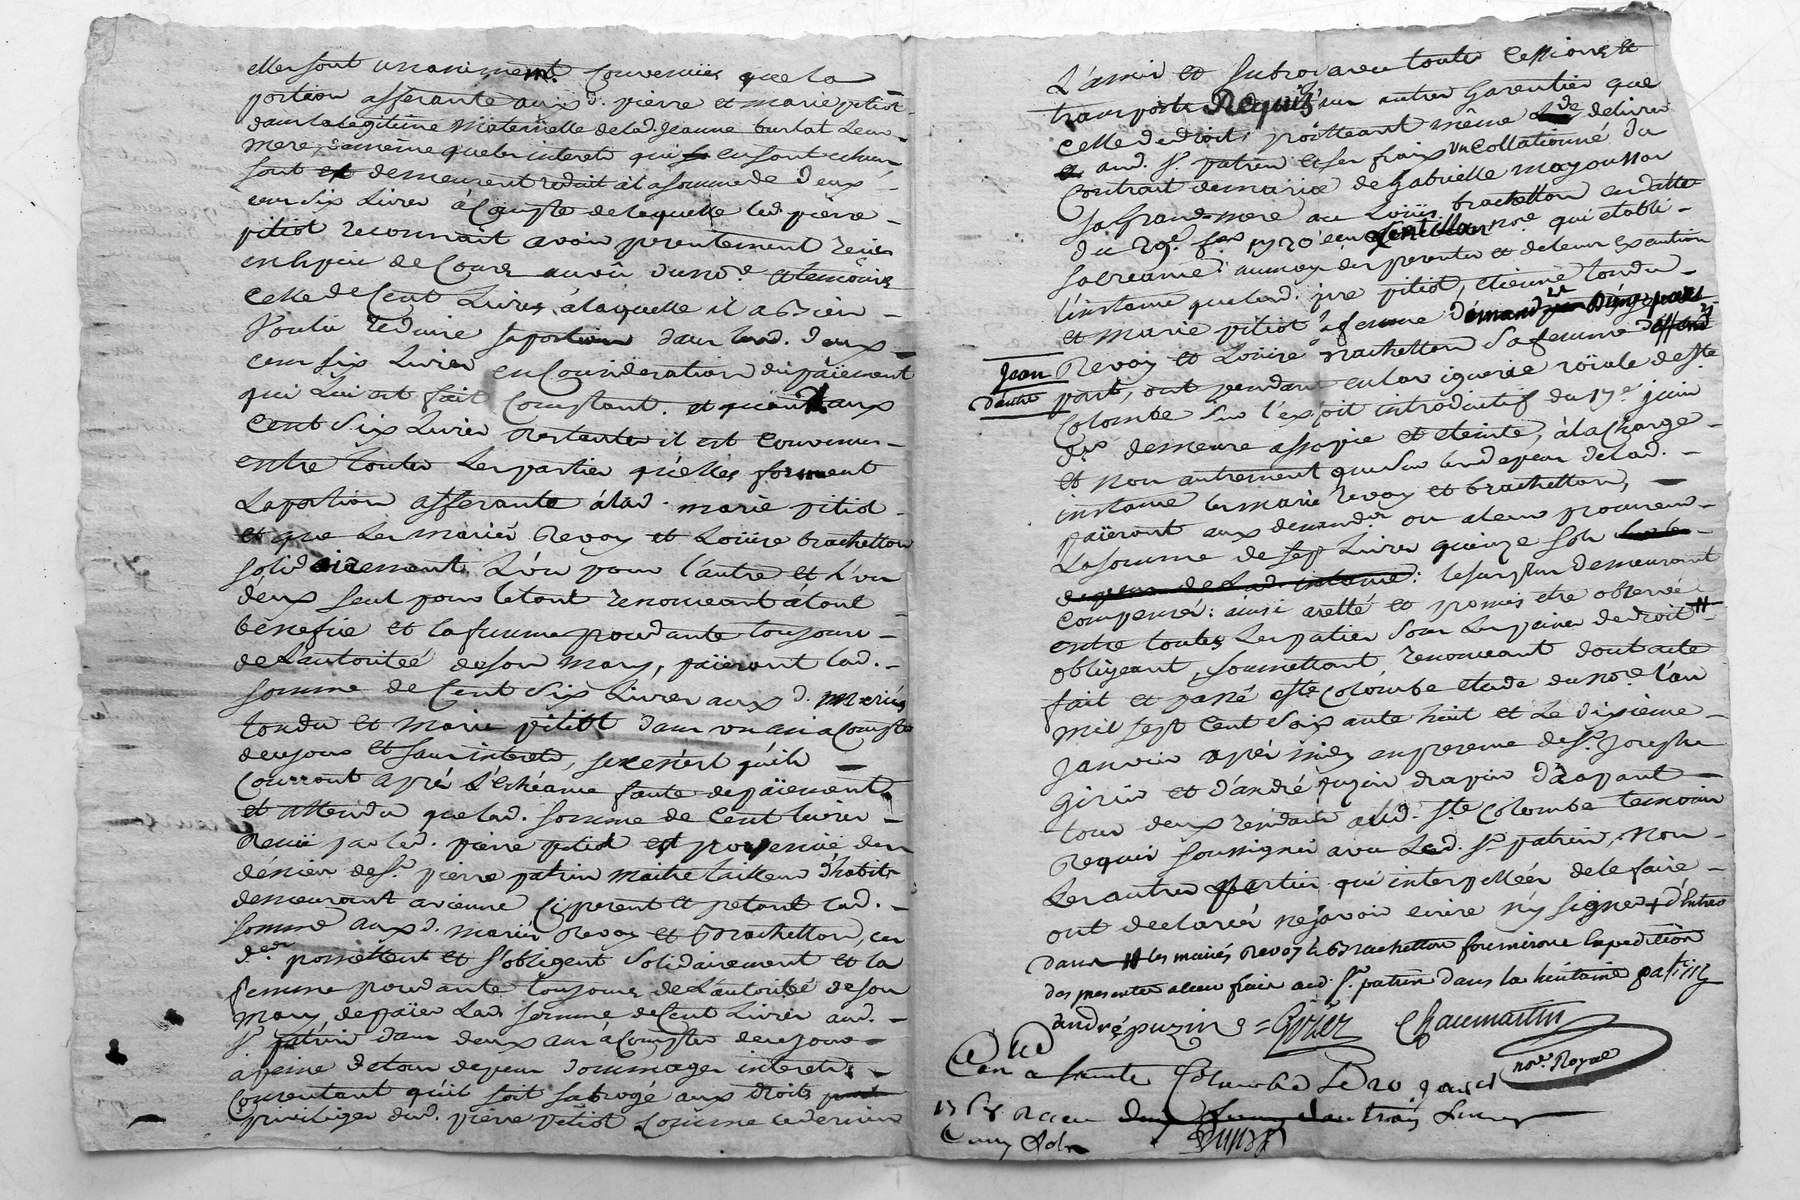 elles sont unanimemt. Convenües que la
portion afferante aux d. pierre et marie pitiot
dans la legitime Maternelle de lad. Jeanne burlat leur
mere, de meme que les interets qui en sont echeus
sont et demeurent reduit à la somme de deux
cens six Livres à Compte de laquelle led. pierre
pitiot reconnait avoir presentement reçeu
en espece de Cours au vû du nore. et temoins
Celle de Cent Livres, à laquelle il a bien
voulu reduire sa portion dans lesd. deux
cens six Livres en Consideration du païement
qui Lui est fait Comptant. et quant aux
Cent Six Livres Restantes il est Convenu
entre toutes Les parties qu'elles forment
La portion afferante à lad. marie pitiot
et que Les mariés Revoy et Loüise brachetton
solidairement L'un pour l'autre et L'un
d'eux seul pour le tout renonceant à tout
bénéfice et la femme procedante toujours
de L'autoritée de son Mary, païeront lad.
somme de Cent Six Livres aux d. mariés
tondu et Marie pitiot dans un an à Compter
de ce jour et sans interets, si ce n'est qu'ils
Courront aprés L'echéance faute de païement
et attendu que lad. somme de Cent livres
Reçuë par led. pierre pitiot est provenuë des
déniers de Sr. pierre patrin maitre tailleur d'habits
demeurant a vienne Ci present et pretant lad.
somme aux d. mariés Revoy et Brachetton, ces
ders. promettent et s'obligent Solidairement et la
femme procedante toujours de L'autorité de son
Mary de païer Lad. somme de Cent Livres aud.
Sr. patrin dans deux ans à Compter de ce jour
a peine de tous depens dommages interets,
Consentant qu'il soit subrogé aux droits
privileges dud. pierre pitiot Comme ce dernier
L'a mis et Subrogé avec toutes Cessions et
transports Requis sans autre Garentie que
celle de droit, promettant même de delivrer
aud. Sr. patrin et a ses fraix un Collationné du
Contrait de mariage de Gabrielle mayoussou
sa Grand-mere avec Loüis brachetton en datte
du 29e. 1720 reçu Gentillau nore. qui etabli
sa creance: au moyen des presentes et de leur execution
l'instance que led. pre. pitiot, etienne tondu
et Marie pitiot sa femme démandeurs d'une part
Jean Revoy et Loüise Brachetton Sa femme deffendrs
d'autre part, ont pendante en la viguerie roïale de Ste
Colombe Sur l'exploit introductif du 17e juin
der. demeure assopie et eteinte, à la Charge
et non autrement que Sur les depens de lad.
instance les mariés Revoy et brachetton,
païeront aux demandrs. ou a leur procureur
La somme de sept Livres quinze sols
le surplus demeurant
Compensés: ainsi aretté et promis etre observé
entre toutes Les parties Sous Les peines de droit #
obligeant, soumettant renonceant dont acte
fait et passé a Ste. Colombe etude du nore. l'an
mil sept Cent Soixante huit et Le dixieme
Janvier après midy en presence de Sr. Joseph
Girin et d'andré puzin drapier drapant
tous deux residants aud. Ste. Colombe temoins
Requis soussignés avec Led. Sr. patrin, Non
Les autres parties qui interpellées de le faire
ont declarés ne savoir ecrire n'y signer + d'Entrés
dans # les mariés Revoy & Brachetton fourniront Expedition
des presentes a leur frais aud. Sr. patrin dans la huitaine patrin
andré puzin Girin Chaumartin
nore. Royal
Conlé a Sainte Colombe Le 20 janvr
1768. Receu
Cinq Sols